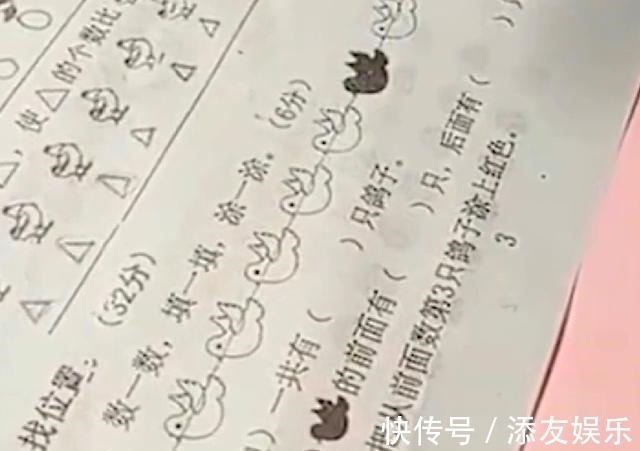 ，使△的个数比
找位置：(32分)
数一数，填一填，涂一涂。(6分)
)一共有( )只鸽子。
的前面有( )只，后面有( )
把从前面数第3只鸽子涂上红色。
3
快传号／添友娱乐